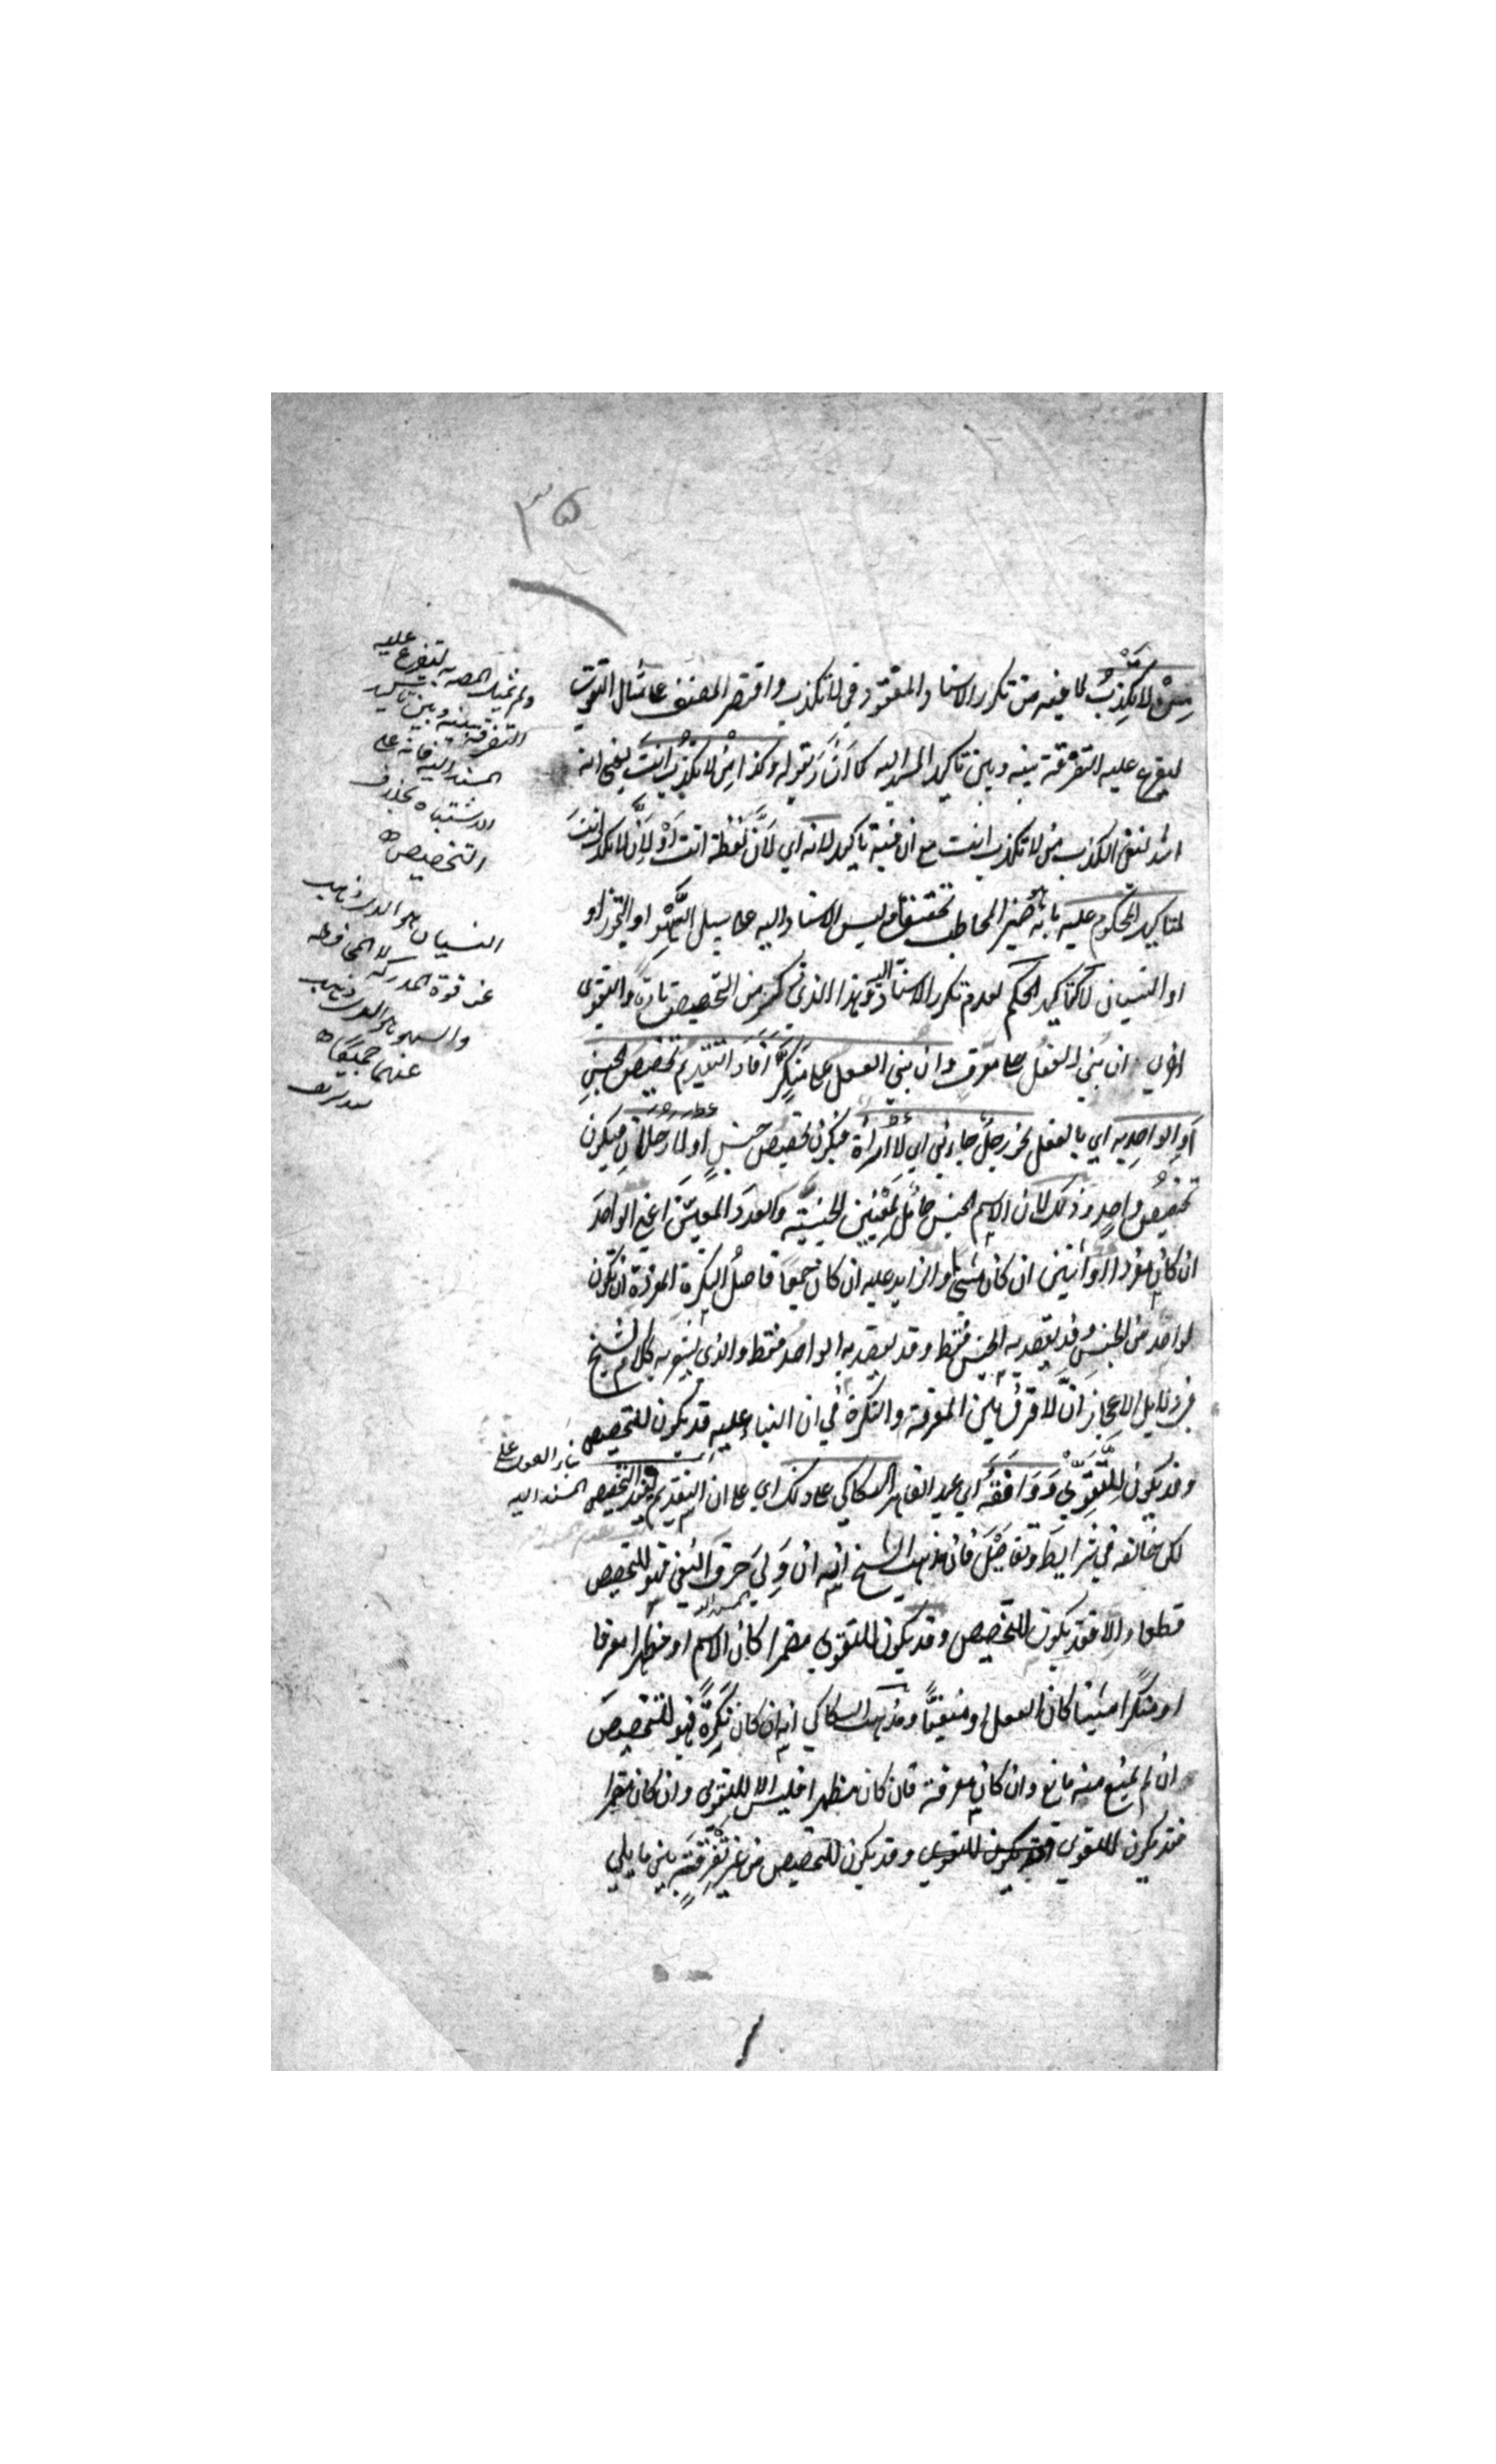 ٣٥
من لا تكذب لما فيه من تكرر الاسناد المفقود في لا تكذب واقتصر المصنف على مثال التقوى
ليفرع عليه التفرقة بينه وبين تاكيد المسند اليه كما اشار بقوله وكذا من لا تكذب انت يعنى انه
اشد لنفى الكذب من لا تكذب انت مع ان فيه تاكيد لانه اي لان لفظة انت او لان لا تكذب انت
لتاكيد المحكوم عليه بانه ضمير المخاطب تحقيقا وليس الاسناد اليه على سبيل السهو او التجوز او
او النسيان لا لتاكيد الحكم لعدم تكرر الاسناد وهذا الذي ذكر من التخصيص تارة والتقوى
اخرى ان بني الفعل على معرف وان بني الفعل على منكر افاد التقديم تخصيص الجنس
او الواحد به اي بالفعل نحو رجل جاءني اي لا امرأة فيكون تخصيص جنس او لا رجلان فيكون
تخصيص واحد وذلك لان الاسم الجنس حامل لمعنيين الجنسية والعدد المعين اعني الواحد
ان كان مفردا او اثنين ان كان مثنى او الزايد عليه ان كان جمعا فاصل النكرة المفردة ان تكون
لواحد من الجنس وقد يقصد به الجنس فقط وقد يقصد به الواحد فقط والذي يشعر به كلام الشيخ
في دلايل الاعجاز ان لا فرق بين المعرفة والنكرة في ان البناء عليه قد يكون للتخصيص
وقد يكون للتقوي ووافقه اي عبد القاهر السكاكي على ذلك اي على ان التقديم يفيد التخصيص
لكن خالفه في شرايط وتفاصيل فان مذهب الشيخ انه ان ولي حرف النفي فهو للتخصيص
قطعا والا فقد يكون للتخصيص وقد يكون للتقوي مضمرا كان الاسم او مظهرا معرفا
او منكرا مثبتا كان الفعل او منفيا ومذهب السكاكي انه ان كان نكرة فهو للتخصيص
ان لم يمنع منه مانع وان كان معرفة فان كان مظهرا فليس الا للتقوي وان كان مضمرا
فقد يكون للتقوي فقد يكون للتقوي وقد يكون للتخصيص من غير تفرقة بين ما يلي
ليتفرع عليه
التفرقة بينه وبين تاكيد
المسند اليه فانه على
الاشتباه بخلاف
التخصيص
النسيان هو الذي ذهب
عن قوة المدركة لا الحافظة
والسهو هو الذي ذهب
عنهما جميعا
بناء الفعل على
المسند اليه